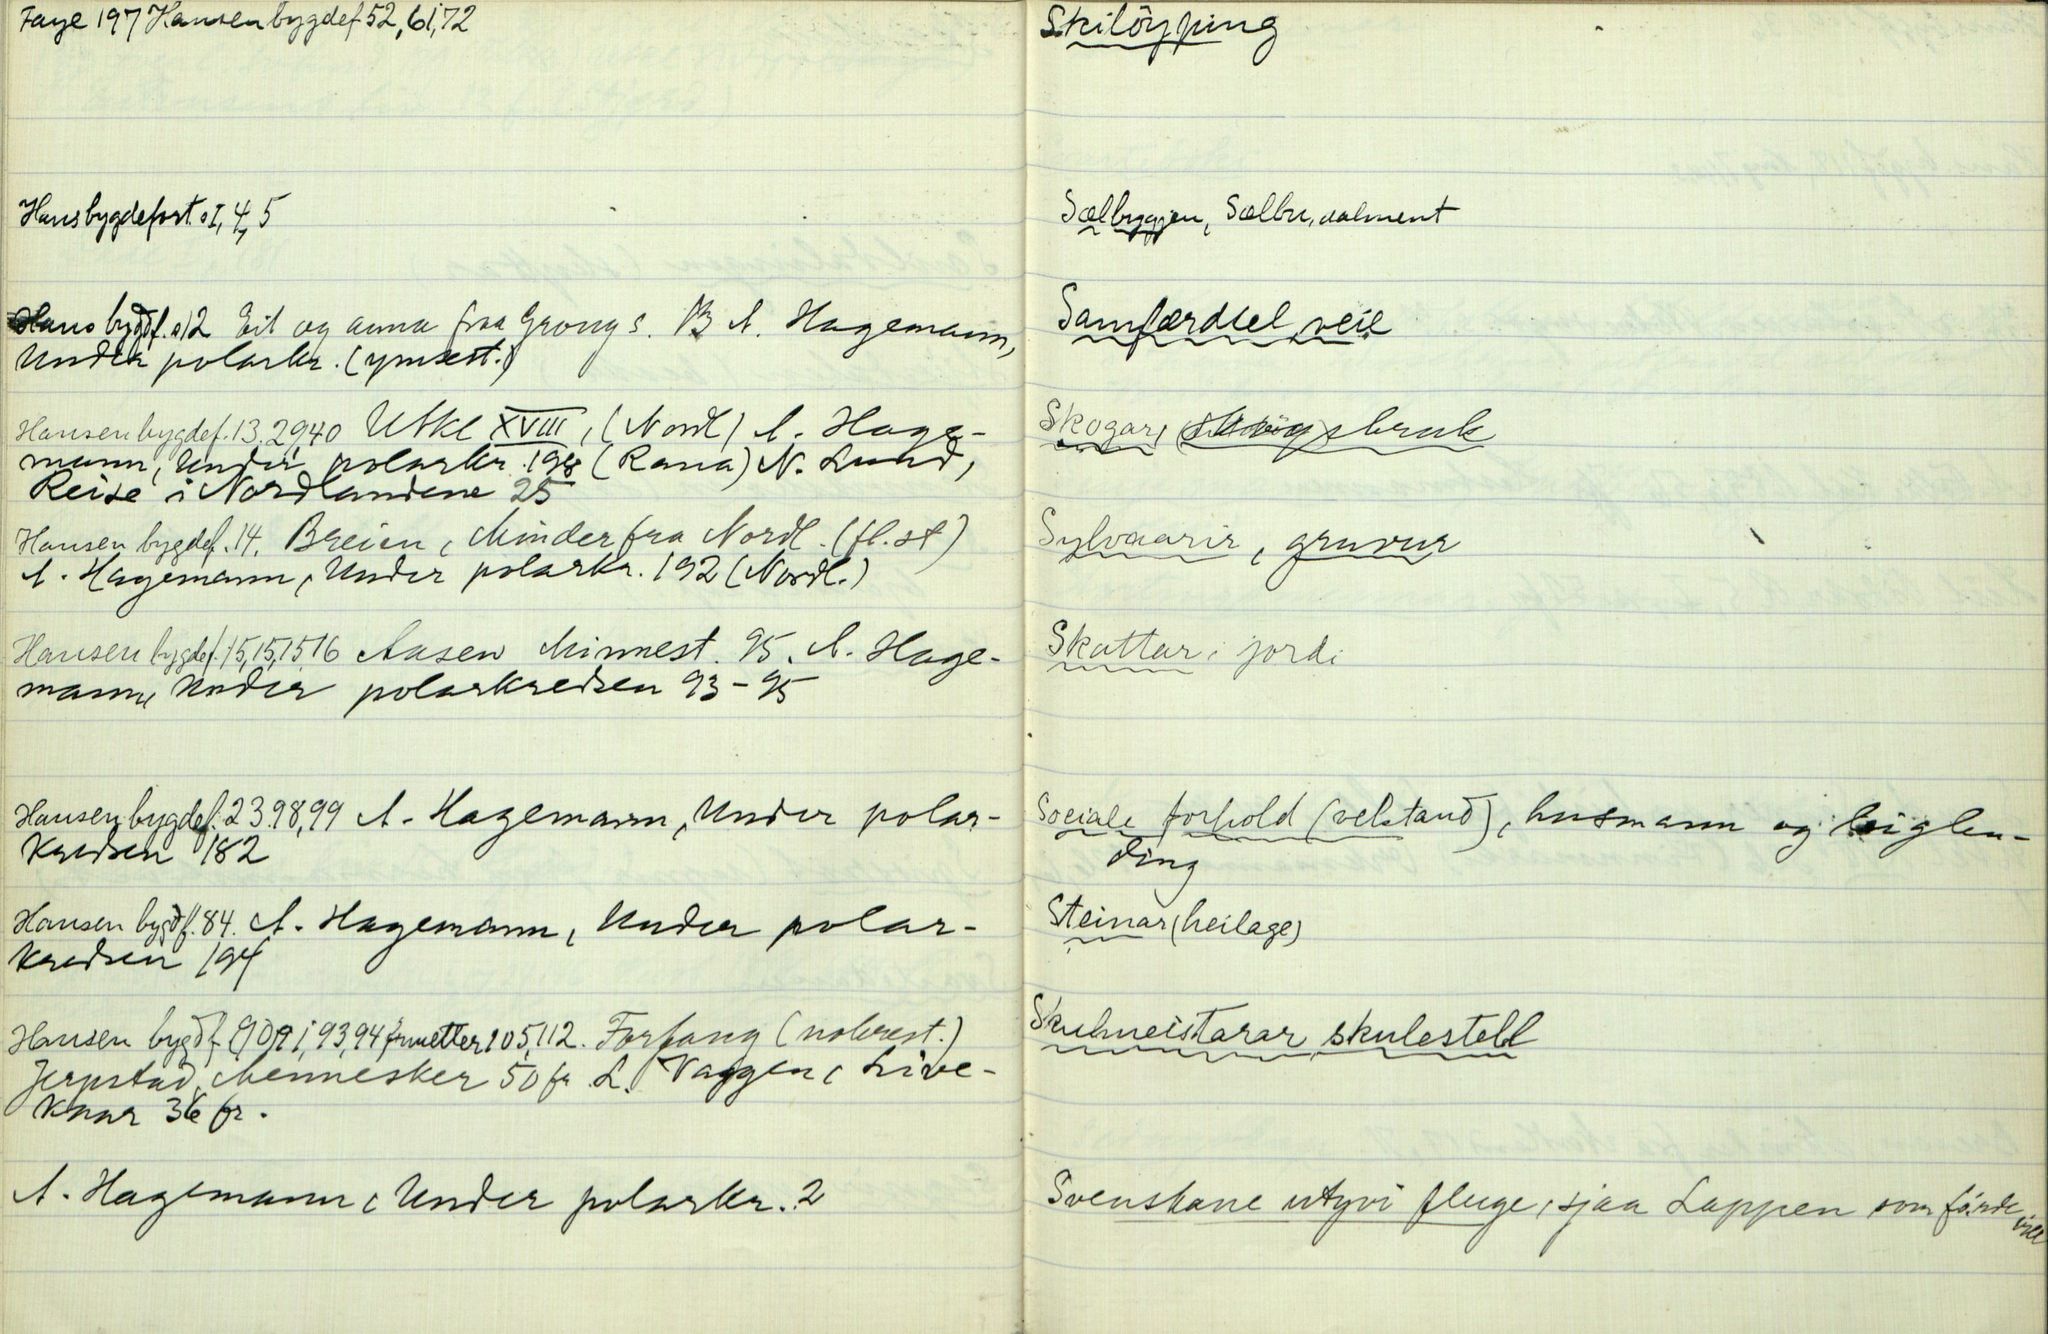 Faye 197 Hansen bygdef 52, 61, 72
Hans bygdefort. s I, 4, 5
Hans bygdf. s 12 Eit og anna fraa Grong s. B A. Hagemann,
Under polarkr. (ymsest.)
Hansen bygdef. 13. 29,40 Utkl XVIII, (Nordl) A. Hage-
mann, Under polarkr. 198 (Rana) N. Lund,
Reise i Nordlandene 25
Hansen bygdef. 14. Breien, Minder fra Nordl. (fl. st)
A. Hagemann, Under polarkr. 192 (Nordl.)
Hansen bygdef. 15,15,15,16 Aasen Minnest. 95. A. Hage-
mann, Under polarkredsen 93-95
Hansen bygdef. 23.98,99 A. Hagemann, Under polar-
kredsen 182
Hansen bygdf. 84. A. Hagemann, Under polar-
kredsen 194
Hansen bygdf. 90, 91, 93, 94 105, 112. Forfang (nokrest.)
Jerpstad, Mennesker 50 fr. L. Vaggen, Live-
kaar 36 fr.
A. Hagemann, Under polarkr. 2
Skilöyping
Sælbyggjen, Sælbu, aalment
Samfærdsel, veie
Skogar, skogsbruk
Sylvaarir, gruvur
Skattar i jordi
Sociale forhold (velstand), husmann og leiglen-
ding
Steinar (heilage)
Skulmeistarar, skulestell
Svenskane utyvi fluge, sjaa Lappen som förde